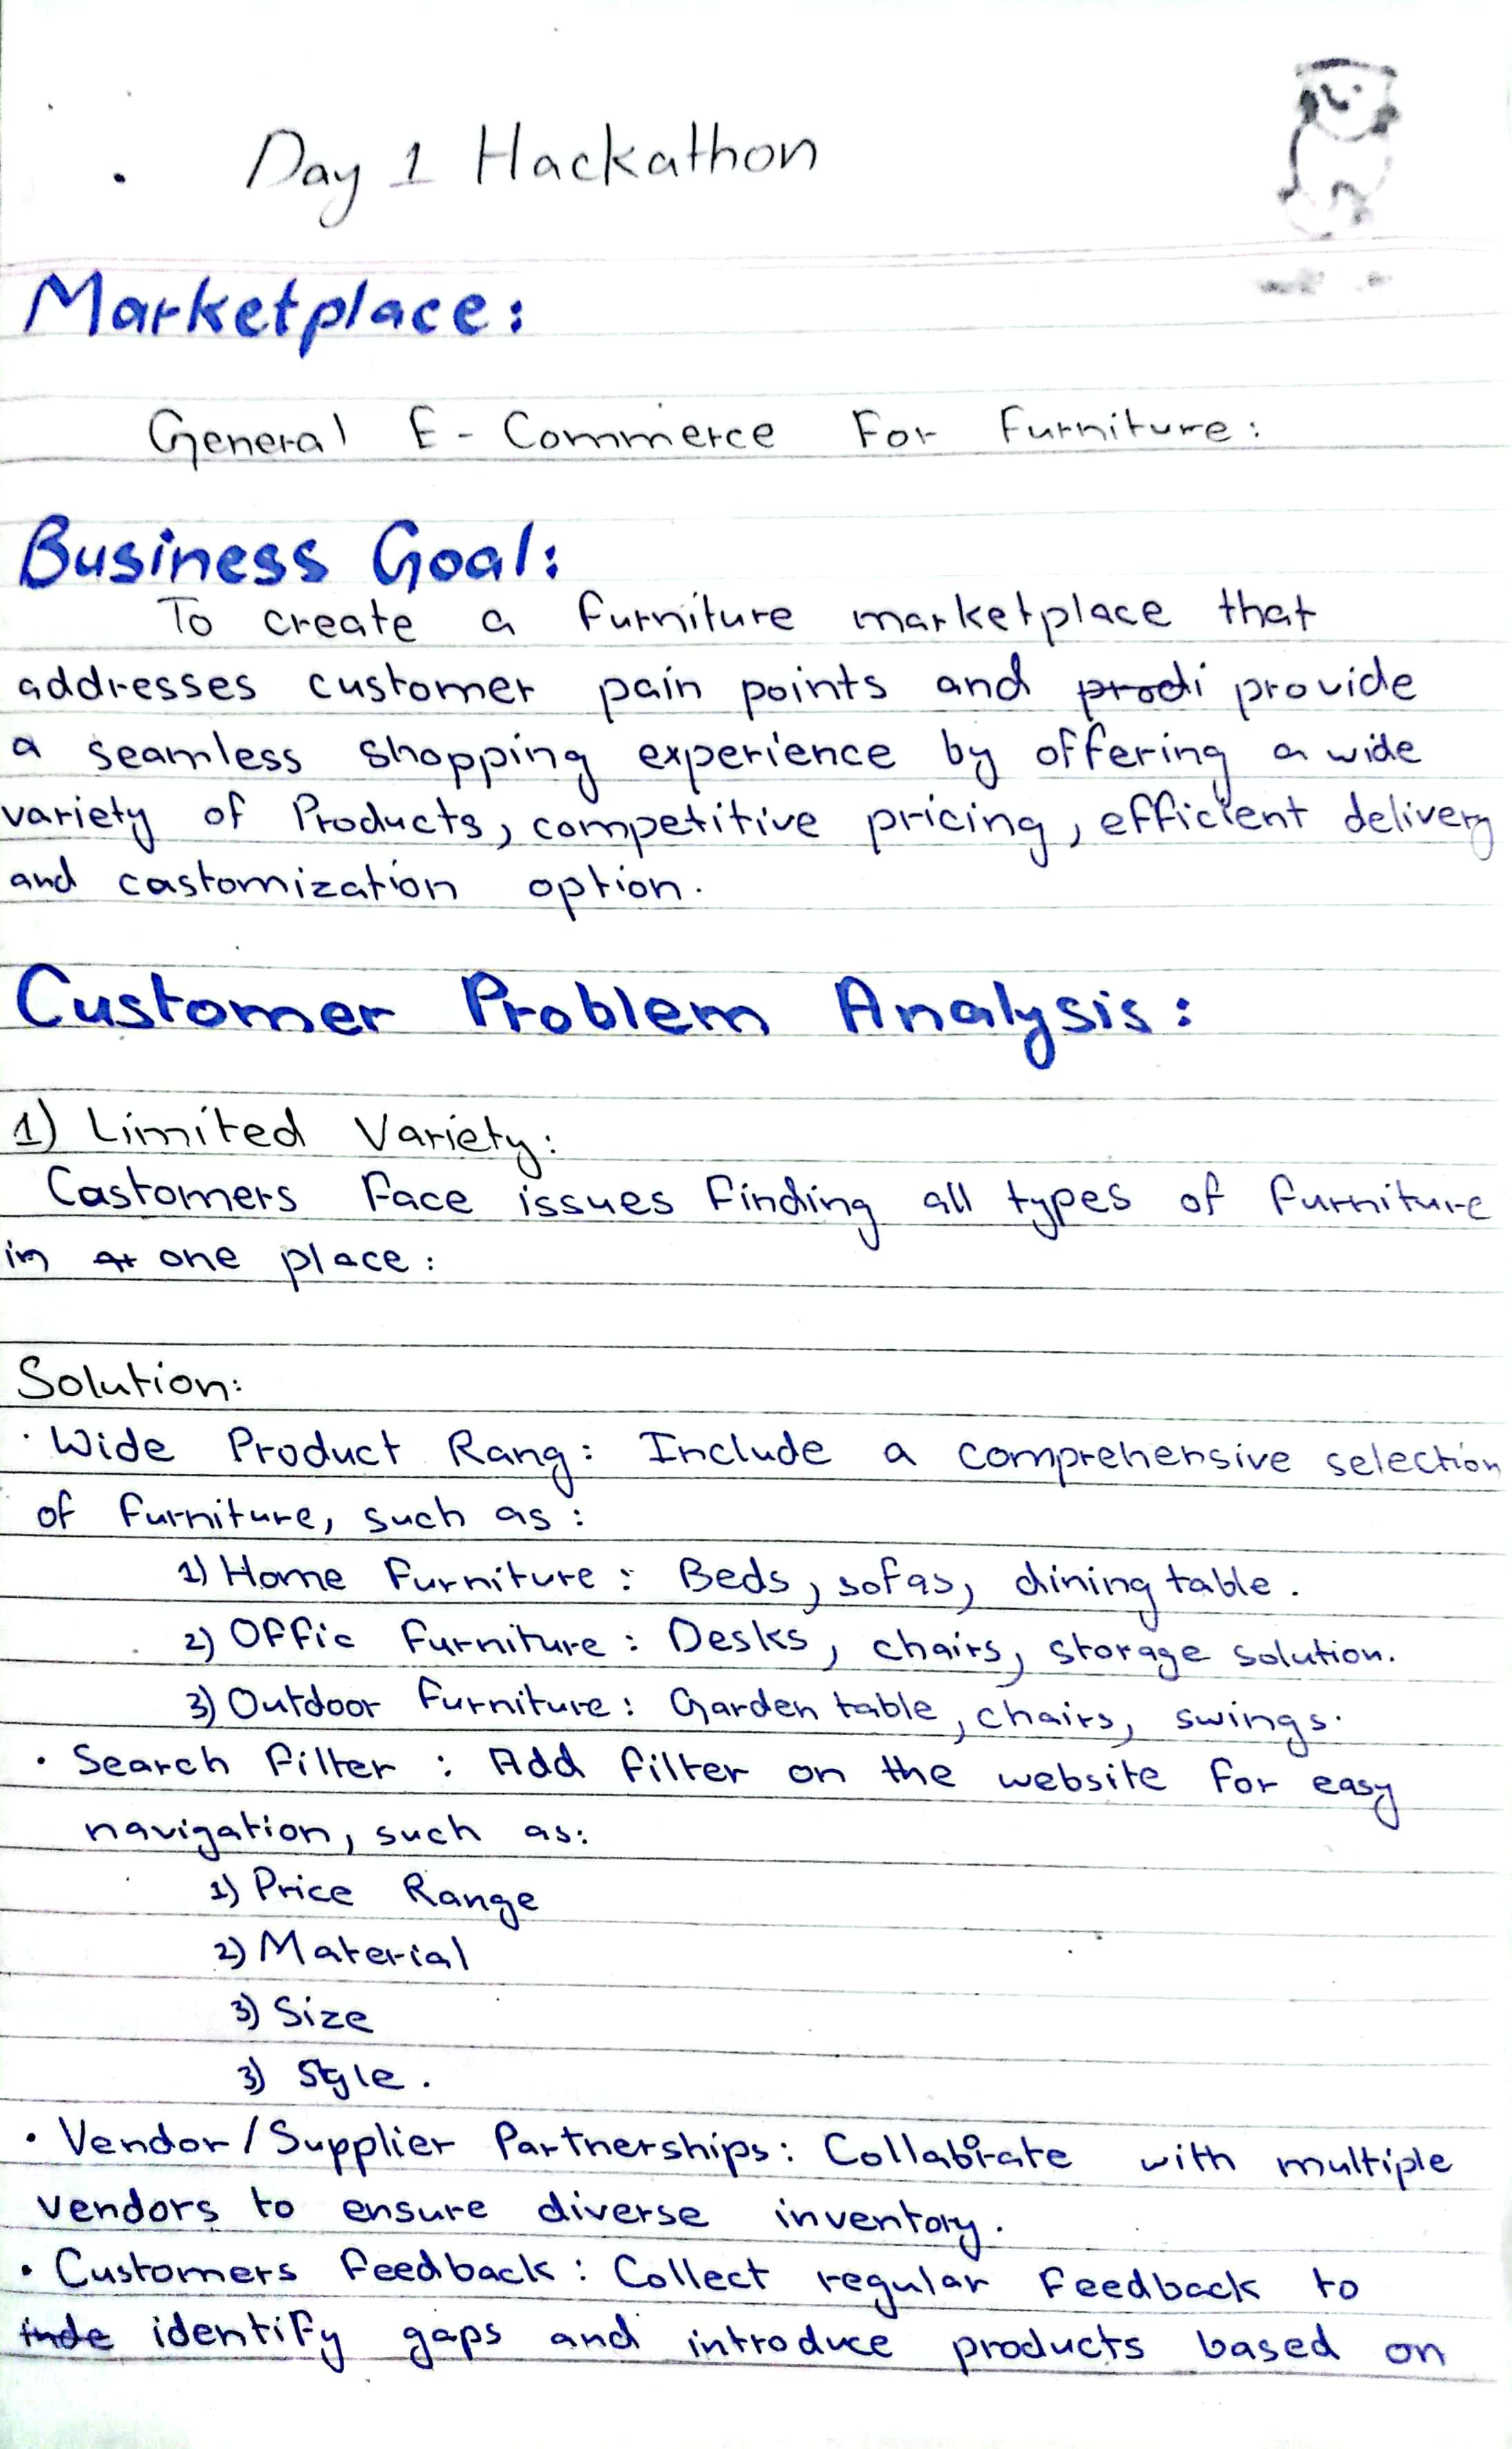 Day 1 Hackathon
Marketplace:
General E-Commerce For Furniture:
Business Goal:
To create a furniture marketplace that
addresses customer pain points and prodi provide
a seamless shopping experience by offering a wide
variety of Products, competitive pricing, efficient delivery
and castomization option.
Customer Problem Analysis:
1) Limited Variety:
Castomers Face issues Finding all types of furniture
in at one place:
Solution:
· Wide Product Rang: Include a comprehensive selection
of furniture, such as:
1) Home Furniture: Beds, sofas, dining table.
2) Offic furniture: Desks, chairs, storage solution.
3) Outdoor furniture: Garden table, chairs, swings.
· Search Filter: Add filter on the website for easy
navigation, such as:
1) Price Range
2) Material
3) Size
3) Style.
· Vendor/Supplier Partnerships: Collaborate with multiple
vendors to ensure diverse inventory.
· Customers feedback: Collect regular feedback to
inde identify gaps and introduce products based on